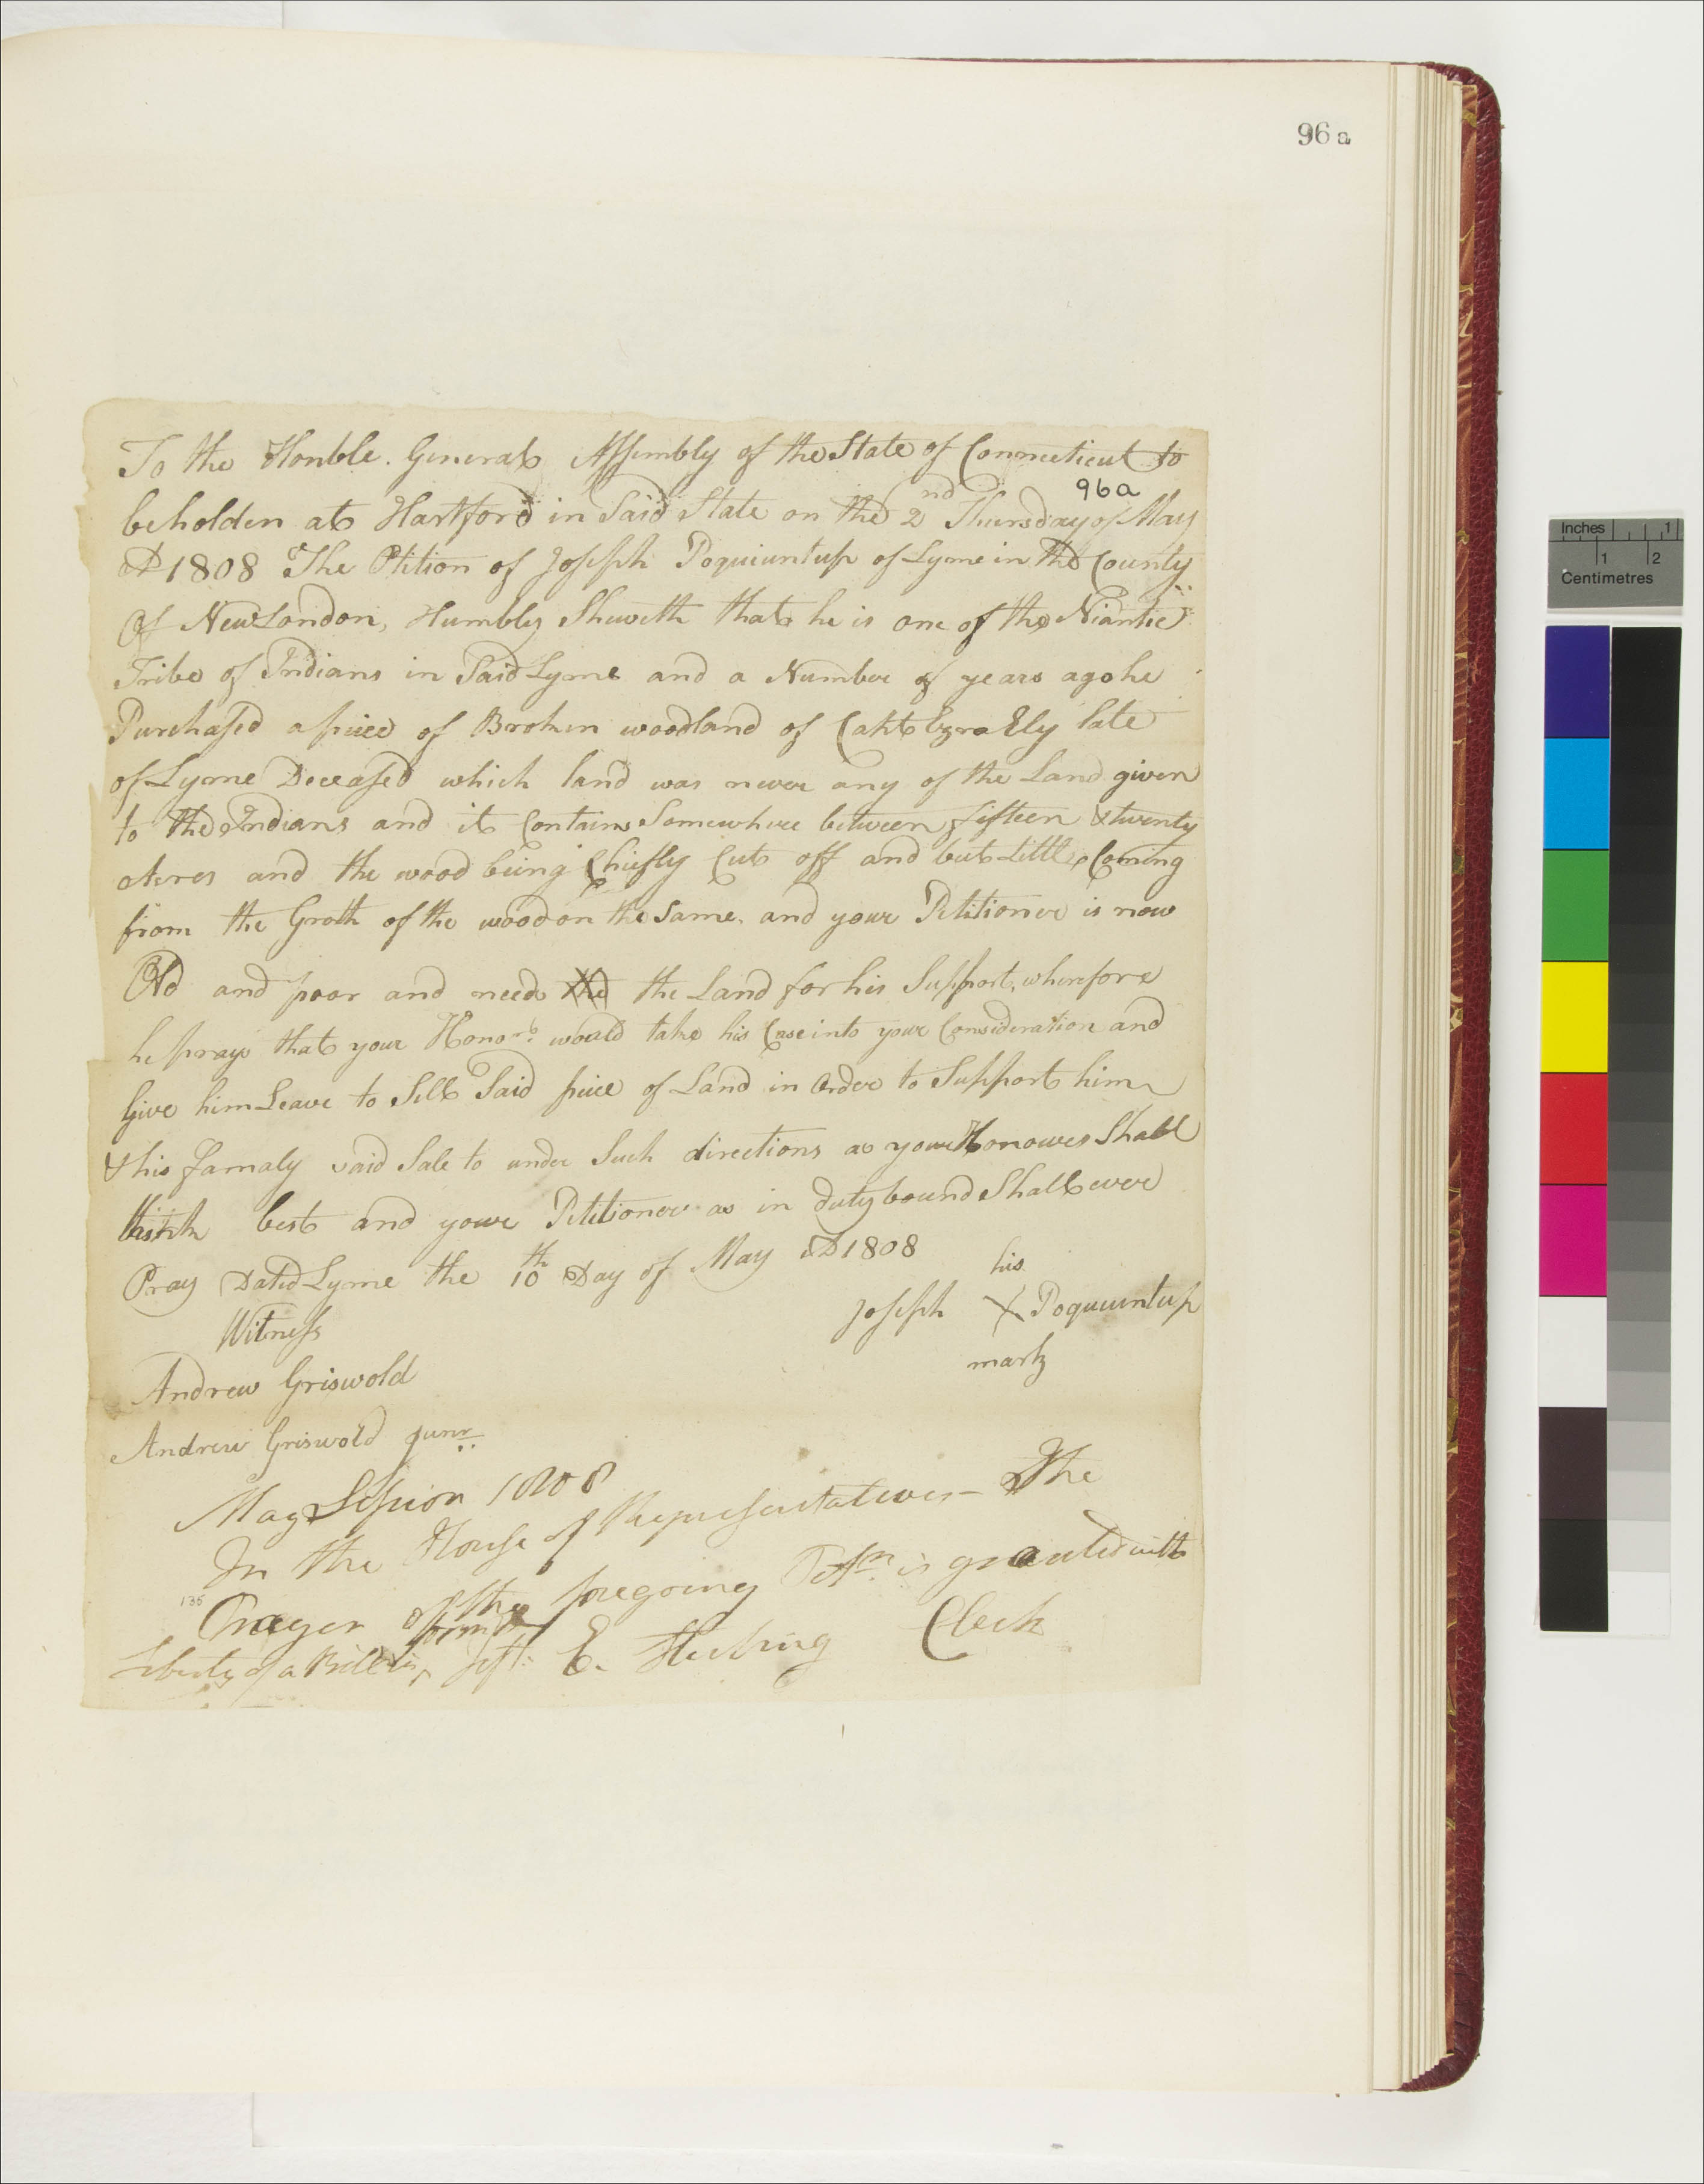 96a
To the Honble. General Assembly of the State of Connecticut to
96a
beholden at Hartford in Said State on the 2nd Thursday of May
AD 1808 The Ptition of Joseph Poquiuntup of Lyme in the County
Of New London, Humbly Sheweth that he is one of the Niantic
Tribe of Indians in Said Lyme and a Number of years ago he
Purchased a piece of Broken woodland of Capt Ezra Ely late
of Lyme Deceased which land was never any of the Land given
to the Indians and it Contains Somewhere between fifteen & twenty
Acres and the wood being Chiefly Cut off and but Little Coming
from the Groth of the wood on the Same. and your Petitioner is now
Old and poor and needs the the Land for his Support, wherefore
he prays that your Honors would take his Case into your Consideration and
Give him Leave to Sell Said piece of Land in Order to Support him
& his famaly said Sale to under Such directions as your Honowers Shall
think best and your Petitioner as in duty bound Shall ever
Pray Dated Lyme the 10th Day of May AD 1808
his
Witness
Joseph X Poquiuntup
mark
Andrew Griswold
Andrew Griswold junr.
May Session 1808
In the House of Representatives – The
135
Prayer of the foregoing Petn. is granted with
Liberty of a Bill in form &c
E. Clerk